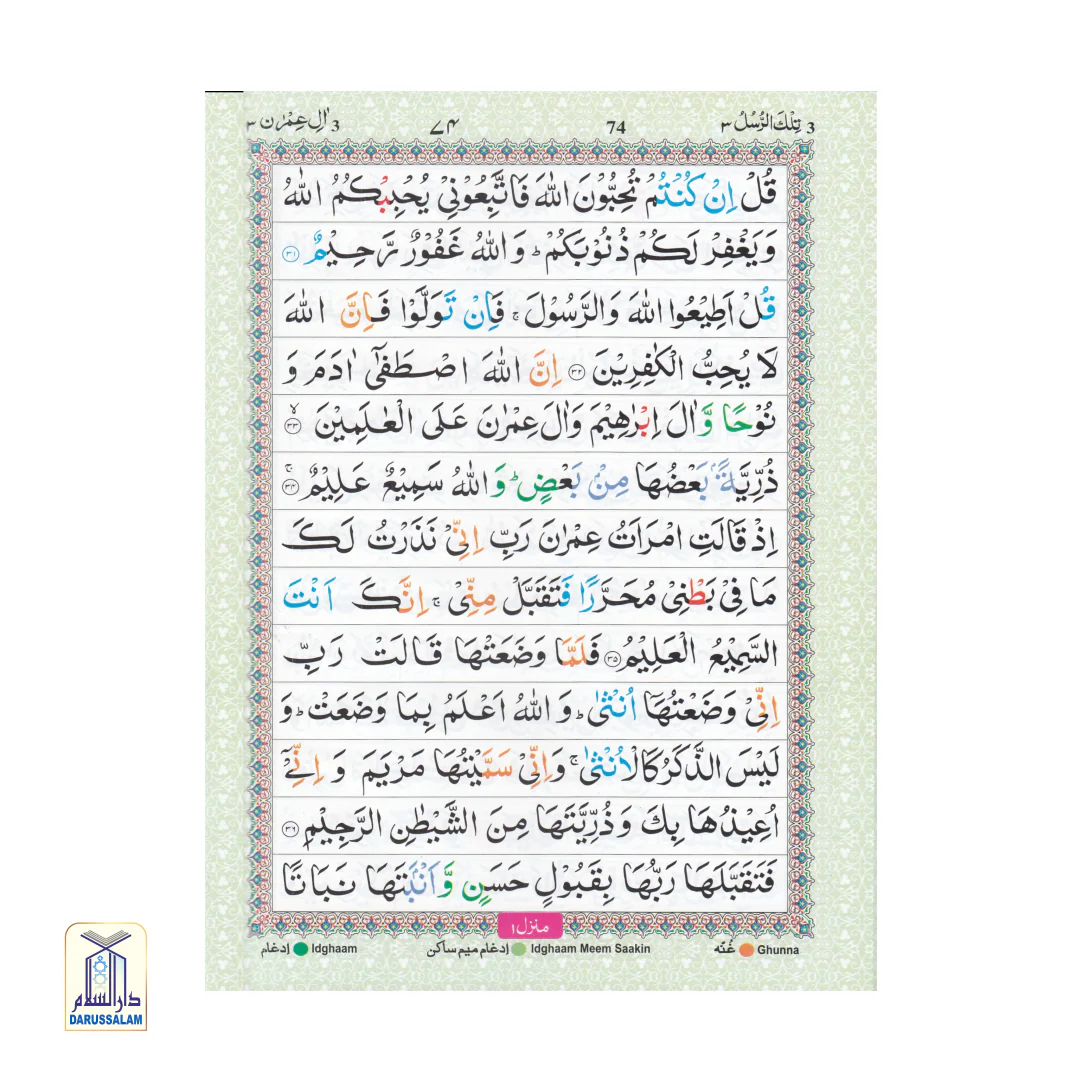 3 تِلْكَ الرُّسُلُ ٣ 74 ٧٤ 3 اٰلِ عِمْرٰن ٣
قُلْ اِنْ كُنْتُمْ تُحِبُّوْنَ اللّٰهَ فَاتَّبِعُوْنِيْ يُحْبِبْكُمُ اللّٰهُ
وَيَغْفِرْ لَكُمْ ذُنُوْبَكُمْ ؕ وَاللّٰهُ غَفُوْرٌ رَّحِيْمٌ ۝٣١
قُلْ اَطِيْعُوا اللّٰهَ وَالرَّسُوْلَ ۚ فَاِنْ تَوَلَّوْا فَاِنَّ اللّٰهَ
لَا يُحِبُّ الْكٰفِرِيْنَ ۝٣٢ اِنَّ اللّٰهَ اصْطَفٰٓى اٰدَمَ وَ
نُوْحًا وَّاٰلَ اِبْرٰهِيْمَ وَاٰلَ عِمْرٰنَ عَلَى الْعٰلَمِيْنَ ۙ۝٣٣
ذُرِّيَّةًۢ بَعْضُهَا مِنْۢ بَعْضٍ ؕ وَاللّٰهُ سَمِيْعٌ عَلِيْمٌ ۚ۝٣٤
اِذْ قَالَتِ امْرَاَتُ عِمْرٰنَ رَبِّ اِنِّيْ نَذَرْتُ لَكَ
مَا فِيْ بَطْنِيْ مُحَرَّرًا فَتَقَبَّلْ مِنِّيْ ۚ اِنَّكَ اَنْتَ
السَّمِيْعُ الْعَلِيْمُ ۝٣٥ فَلَمَّا وَضَعَتْهَا قَالَتْ رَبِّ
اِنِّيْ وَضَعْتُهَاۤ اُنْثٰى ؕ وَاللّٰهُ اَعْلَمُ بِمَا وَضَعَتْ ؕ وَ
لَيْسَ الذَّكَرُ كَالْاُنْثٰى ۚ وَاِنِّيْ سَمَّيْتُهَا مَرْيَمَ وَ اِنِّيْۤ
اُعِيْذُهَا بِكَ وَذُرِّيَّتَهَا مِنَ الشَّيْطٰنِ الرَّجِيْمِ ۝٣٦
فَتَقَبَّلَهَا رَبُّهَا بِقَبُوْلٍ حَسَنٍ وَّاَنْۢبَتَهَا نَبَاتًا
منزل ١
Ghunna غُنّه Idghaam Meem Saakin إدغام ميم ساكن Idghaam إدغام
دار السلام
DARUSSALAM